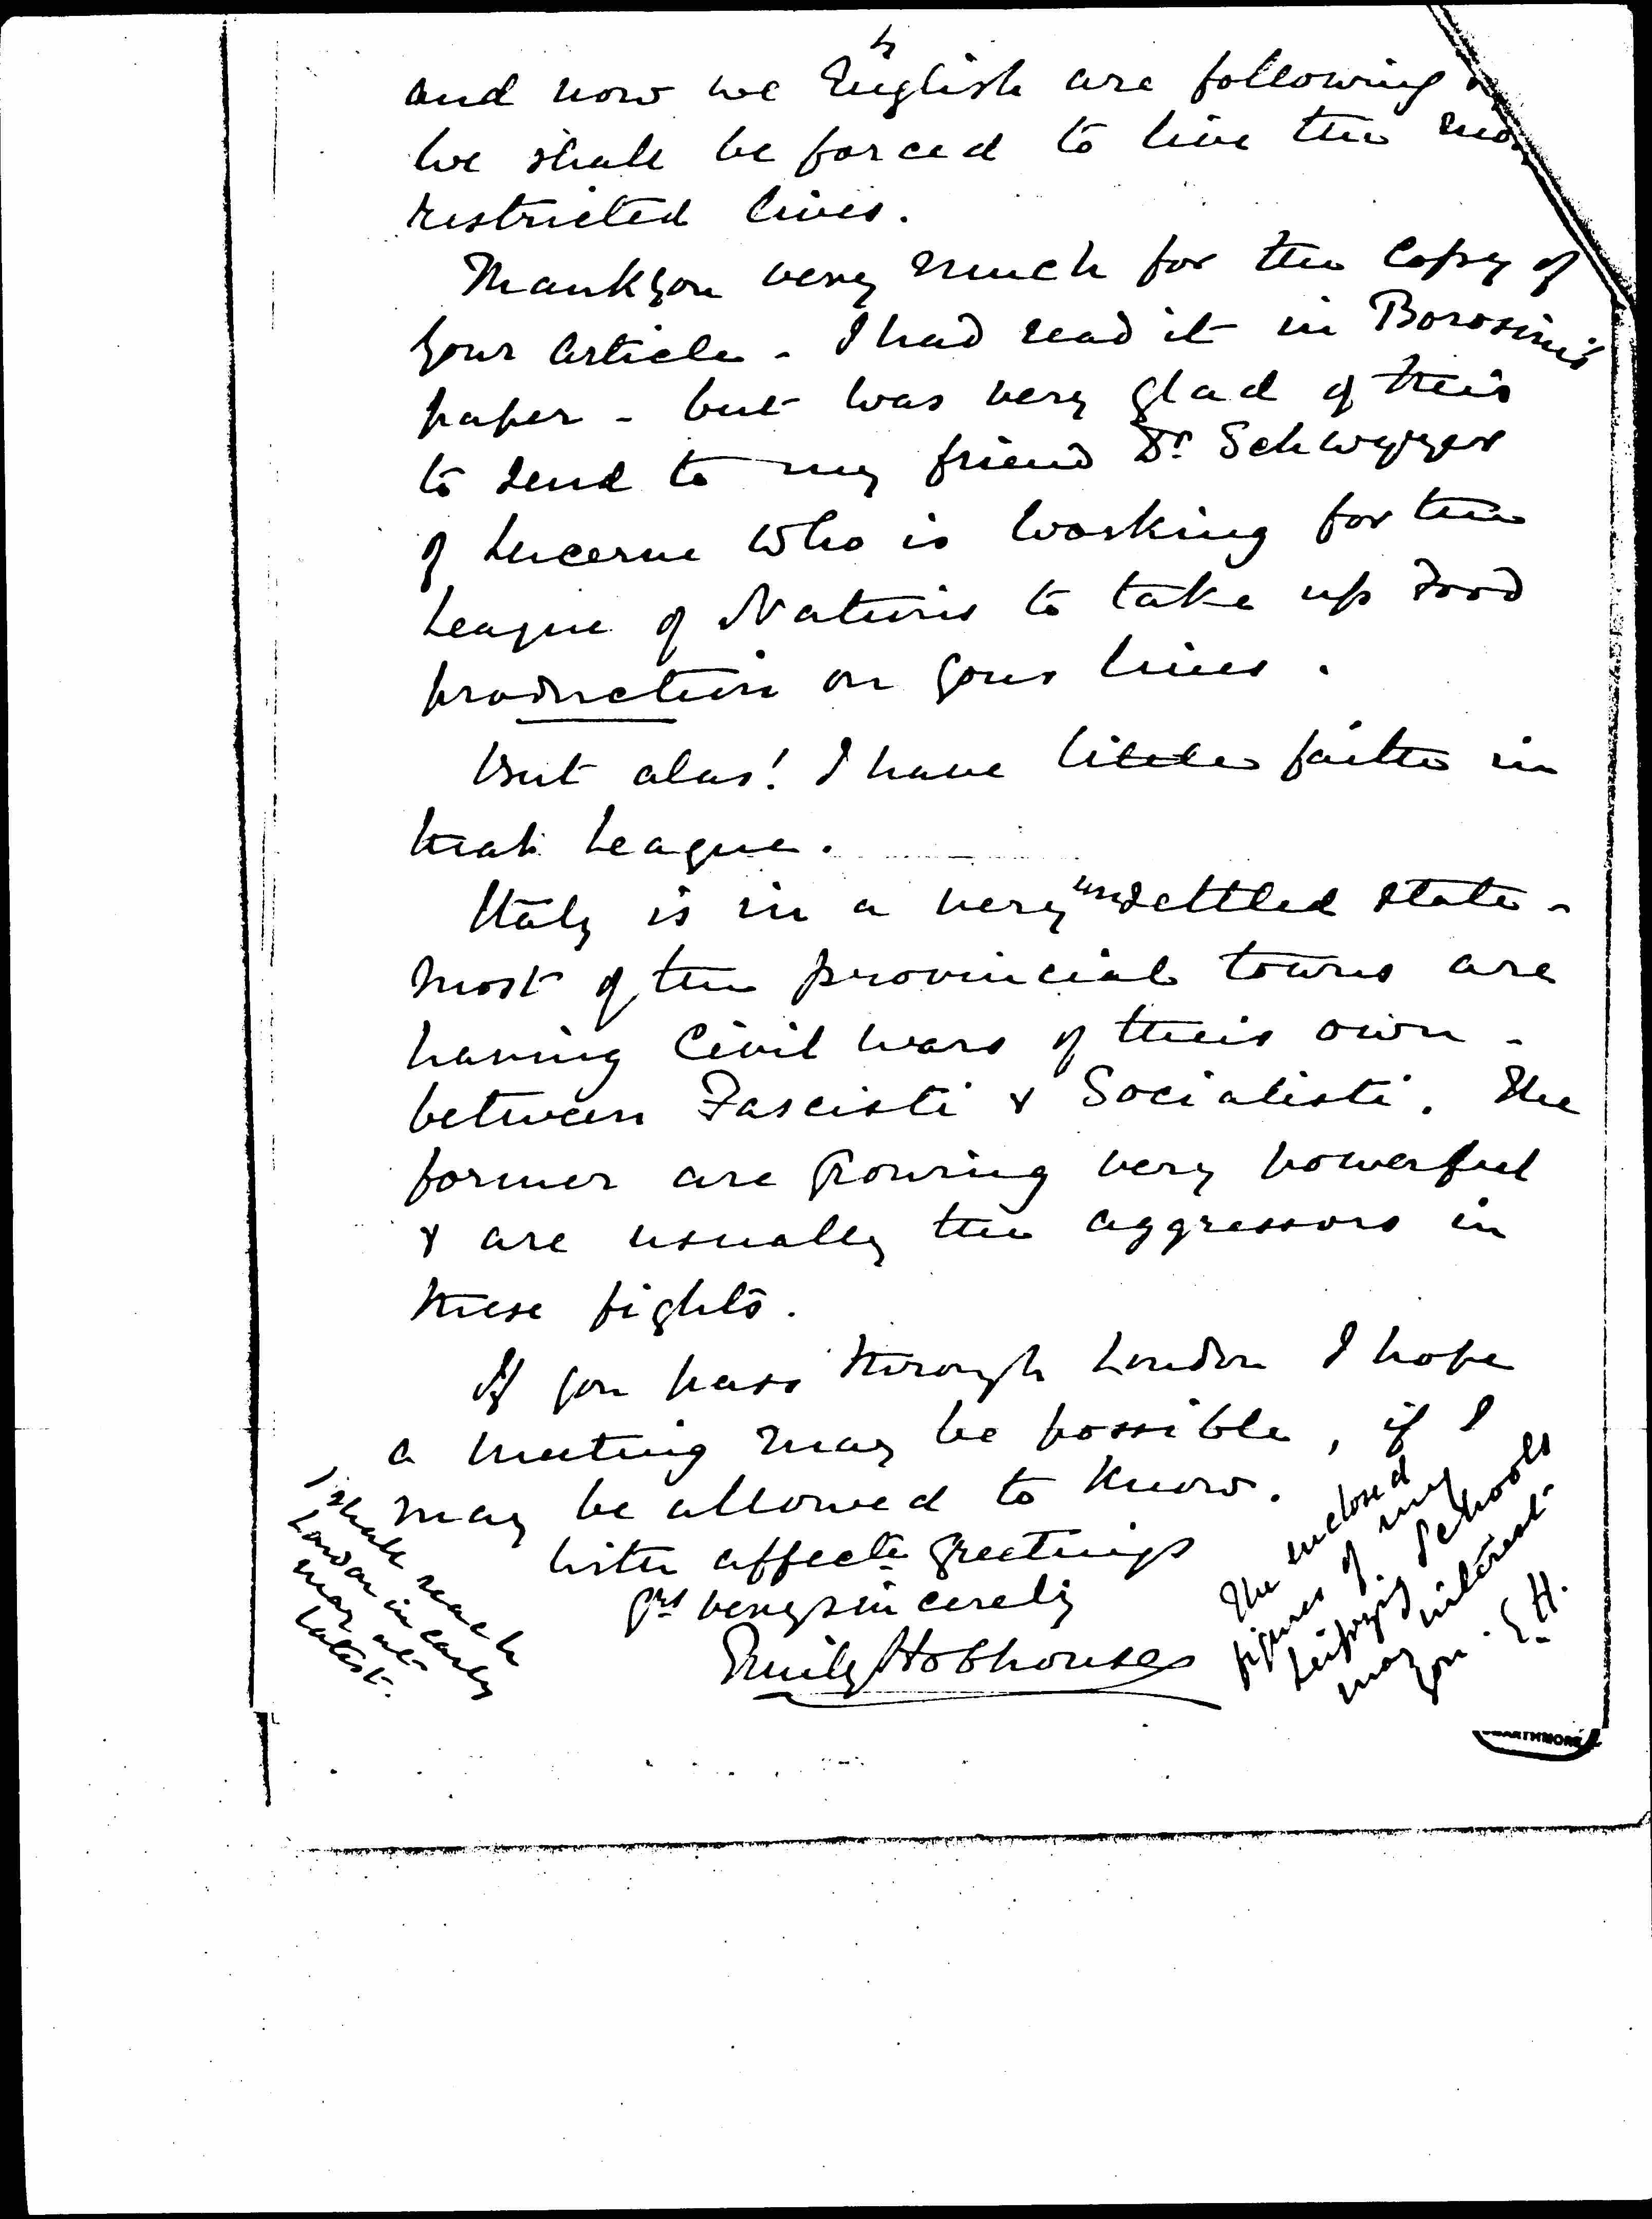 4
and now we English are following
we shall be forced to live the
restricted lives.
Thank you very much for the copy of
your article - I had read it in Borosini's
paper - but was very glad of this
to send to my friend Dr. Schwyzer
of Lucerne who is working for the
League of Nations to take up Food
production on your lines.
But alas! I have little faith in
that League.
Italy is in a very unsettled state -
most of the provincial towns are
having Civil wars of their own -
between Fascisti & Socialisti. The
former are growing very powerful
& are usually the aggressors in
these fights.
If you pass through London I hope
a meeting may be possible, if I
may be allowed to know.
With affecte greetings
yrs very sincerely
Emily Hobhouse
I shall reach
London in early
May at
latest.
The enclosed
figures of my
Leipzig Schools
may interest
you. E.H.